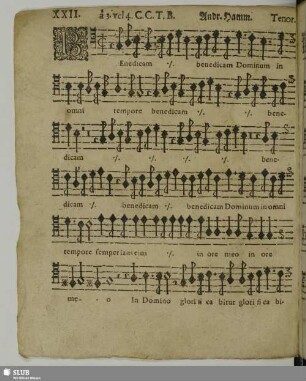 XXII. à 3. vel 4. C. C. T. B. Andr. Hamm. Tenor
BEnedicam ./. benedicam Dominum in
omni tempore benedicam ./. ./. bene-
dicam ./. ./. ./. ./. bene-
dicam ./. benedicam ./. benedicam Dominum in omni
tempore semper ./. in ore meo in ore
me- o In Domino glori fi ca bitur glori fi ca bi-
SLUB